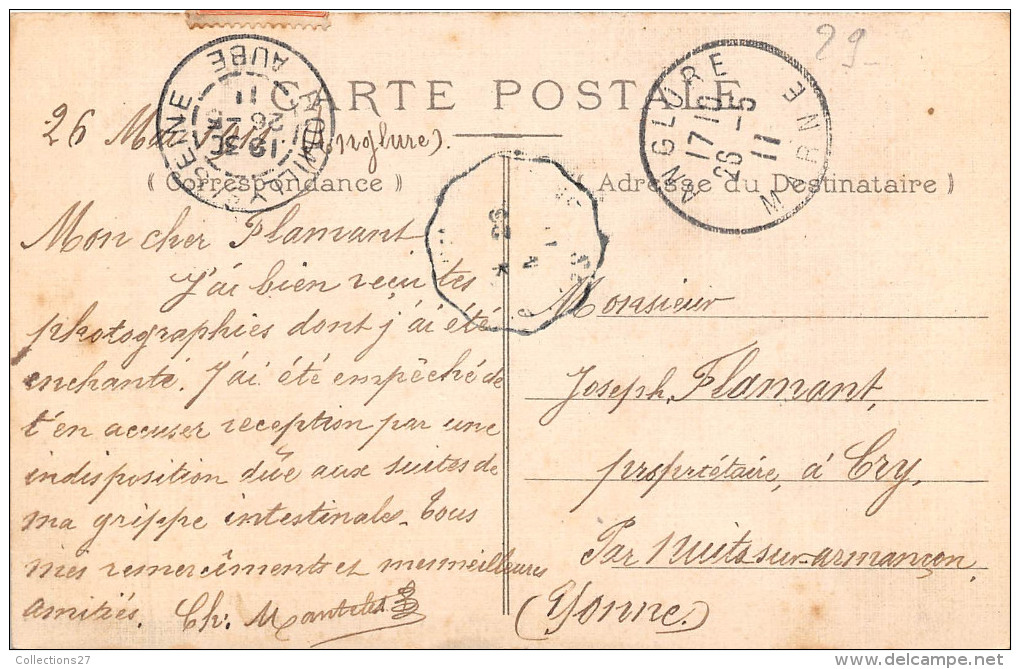 29
CARTE POSTALE
ROMILLY S SEINE
AUBE
26
11
ANGLURE
17 10
26 - 5
11
MARNE
26 Mai 1911. (Anglure).
( Correspondance )
( Adresse du Destinataire )
Mon cher Flamant
J'ai bien reçu tes
photographies dont j'ai été
enchanté. J'ai été empêché de
t'en accuser reception par une
indisposition dûe aux suites de
ma grippe intestinale. Tous
mes remerciments et mes meilleures
amitiés. Ch.
Monsieur
Joseph Flamant,
propriétaire, à Cry,
Par Nuits sur armançon,
(Yonne.)
Collections27